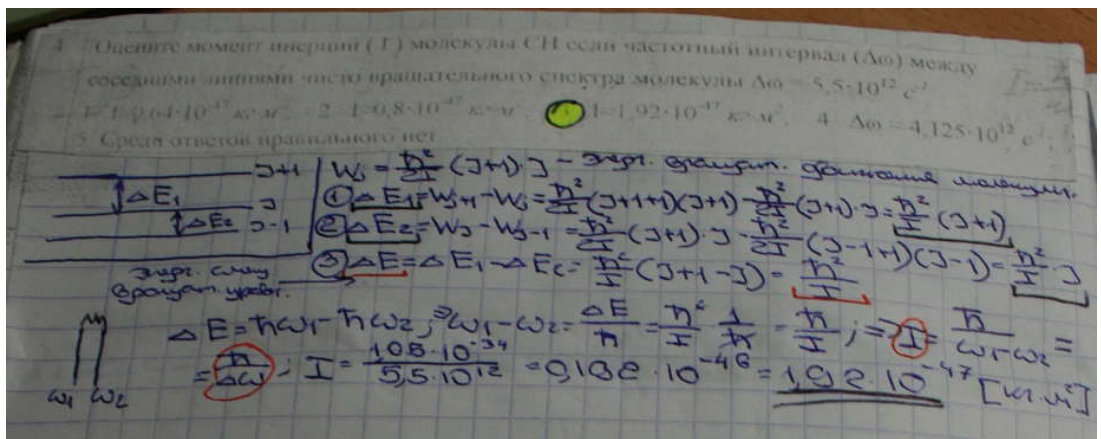 4 Оцените момент инерции ( I ) молекулы CH если частотный интервал (Δω) между
соседними линиями чисто вращательного спектра молекулы Δω = 5,5·10¹² с⁻¹
1 I=0,64·10⁻⁴⁷ кг·м² 2 I=0,8·10⁻⁴⁷ кг·м² I=1,92·10⁻⁴⁷ кг·м², 4 Δω=4,125·10¹² с⁻¹,
5 Среди ответов правильного нет
J+1
J
J-1
ΔE₁
ΔE₂
W_J = ħ²/2I (J+1)·J – энерг. вращат. движения молекулы.
① ΔE₁=W_J+1-W_J=ħ²/2I (J+1+1)(J+1)-ħ²/2I (J+1)·J=ħ²/I (J+1)
② ΔE₂=W_J-W_J-1=ħ²/2I (J+1)·J-ħ²/2I (J-1+1)(J-1)=ħ²/I ·J
③ ΔE=ΔE₁-ΔE₂=ħ²/I (J+1-J)=ħ²/I
вращат.
ΔE=ħω₁-ħω₂; ω₁-ω₂=ΔE/ħ=ħ²/I · 1/ħ = ħ/I; => I= ħ/ω₁-ω₂ =
= ħ/Δω; I = 1,05·10⁻³⁴/5,5·10¹² =0,192·10⁻⁴⁶=1,92·10⁻⁴⁷ [кг·м²]
ω₁ ω₂